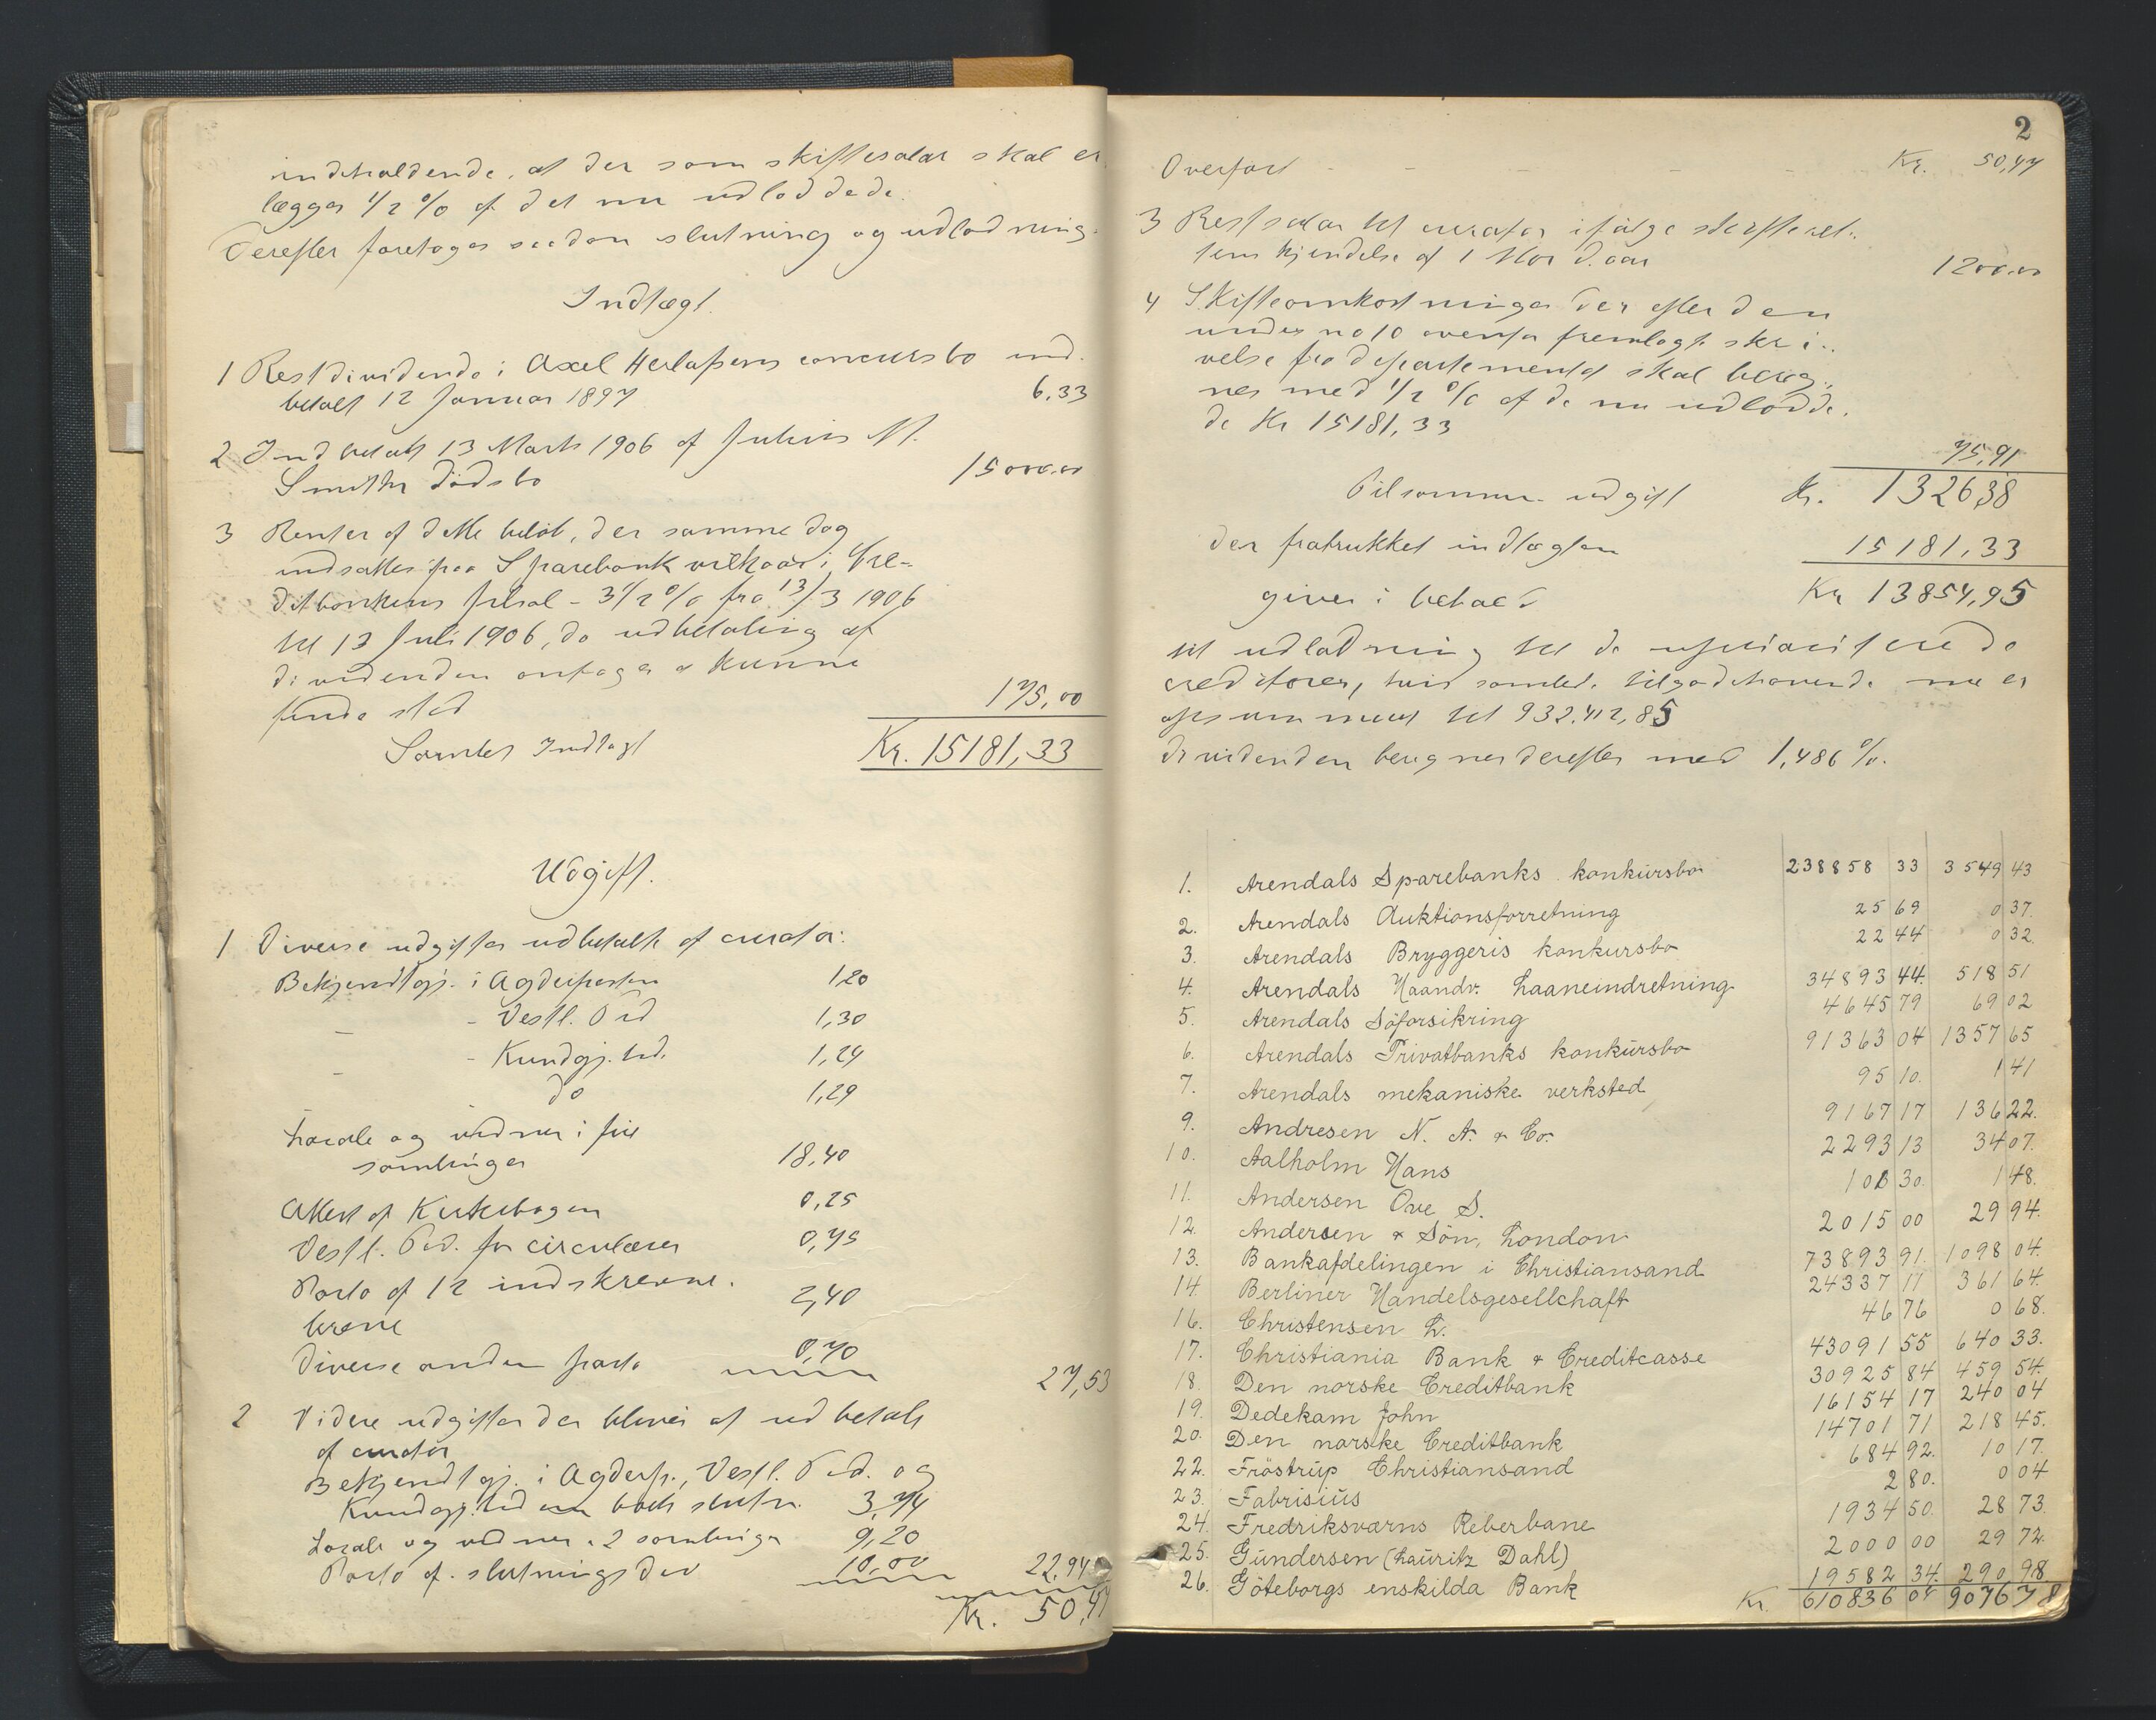 indholdende, at der som skiftesalær skal er
lægges 1/2 % af det nu udloddede.
Derefter foretages saadan slutning og udlodning.
Indtægt.
1 Restdividende i Axel Herlofsens concursbo ind
betalt 12 Januar 1897 6,33
2 Indbetalt 13 Marts 1906 af Julius M.
Smiths dödsbo 15000.00
3 Renter af dette belöb, der samme dag
indsattes paa Sparebank vilkaar i Cre-
ditbankens filial - 3 1/2 % fra 13/3 1906
til 13 Juli 1906, da udbetaling af
dividenden antages at kunne
finde sted 175,00
Samlet Indtægt Kr. 15181,33
Udgift.
1 Diverse udgifter udbetalt af curator:
Bekjendtgj. i Agderposten 1,20
- - Vestl. Tid 1,30
- - Kundgj. tid. 1,24
- do 1,29
Locale og vidner i fire
samlinger 18,40
Attest af Kirkebogen 0,25
Vestl. Tid. for circulærer 0,75
Porto af 12 indskrevne
breve 2,40
Diverse anden porto 0,70
27,53
2 Videre udgifter der bliver at udbetale
af curator
Bekjendtgj. i Agderp., Vestl. Tid. og
Kundgj. tid om boets slutn. 3,74
Locale og vidner i 2 samlinger 9,20
Porto af slutningsdiv 10,00 22,94
Kr. 50,47
2
Overfört - - - - Kr. 50,47
3 Restsalær til curator ifölge skifteret-
tens kjendelse af 1 Mai d. aar 1200.00
4 Skifteomkostninger der efter den
under no 10 ovenfor fremlagte skri-
velse fra departementet skal bereg-
nes med 1/2 % af de nu udlodde-
de Kr 15181,33
75,91
Tilsammen udgift Kr. 1326,38
der fratrukket indtægten 15181,33
giver i behold Kr 13854,95
til udlodning til de uprioriterede
creditorer, hvis samlede tilgodehavende nu er
opsummeret til 932,412,85
Dividenden beregnes derefter med 1,486 %.
1. Arendals Sparebanks konkursbo 238858 33 3549 43
2. Arendals Auktionsforretning 25 69 0 37.
3. Arendals Bryggeris konkursbo 22 44 0 32.
4. Arendals Haandv. Laaneindretning 34893 44. 518 51
5. Arendals Söforsikring 4645 79 69 02
6. Arendals Privatbanks konkursbo 91363 04 1357 65
7. Arendals mekaniske verksted 95 10. 1 41
9. Andresen N. A. & Co. 9167 17 136 22.
10. Aalholm Hans 2293 13 34 07.
11. Andersen Ove S. 100 30. 1 48.
12 Andersen & Sön, London 2015 00 29 94.
13. Bankafdelingen i Christiansand 73893 91. 1098 04.
14. Berliner Handelsgesellchaft 24337 17 361 64.
16. Christensen L. 46 76 0 68.
17. Christiania Bank & Creditcasse 43091 55 640 33.
18. Den norske Creditbank 30925 84 459 54.
19. Dedekam John 16154 17 240 04
20. Den norske Creditbank 14701 71 218 45.
22. Fröstrup Christiansand 684 92. 10 17.
23. Fabrisius 2 80. 0 04
24. Fredriksværns Reberbane 1934 50. 28 73.
25. Gundersen (Lauritz Dahl) 2000 00 29 72.
26. Göteborgs enskilda Bank 19582 34. 290 98.
Kr. 610836 04 9076 78